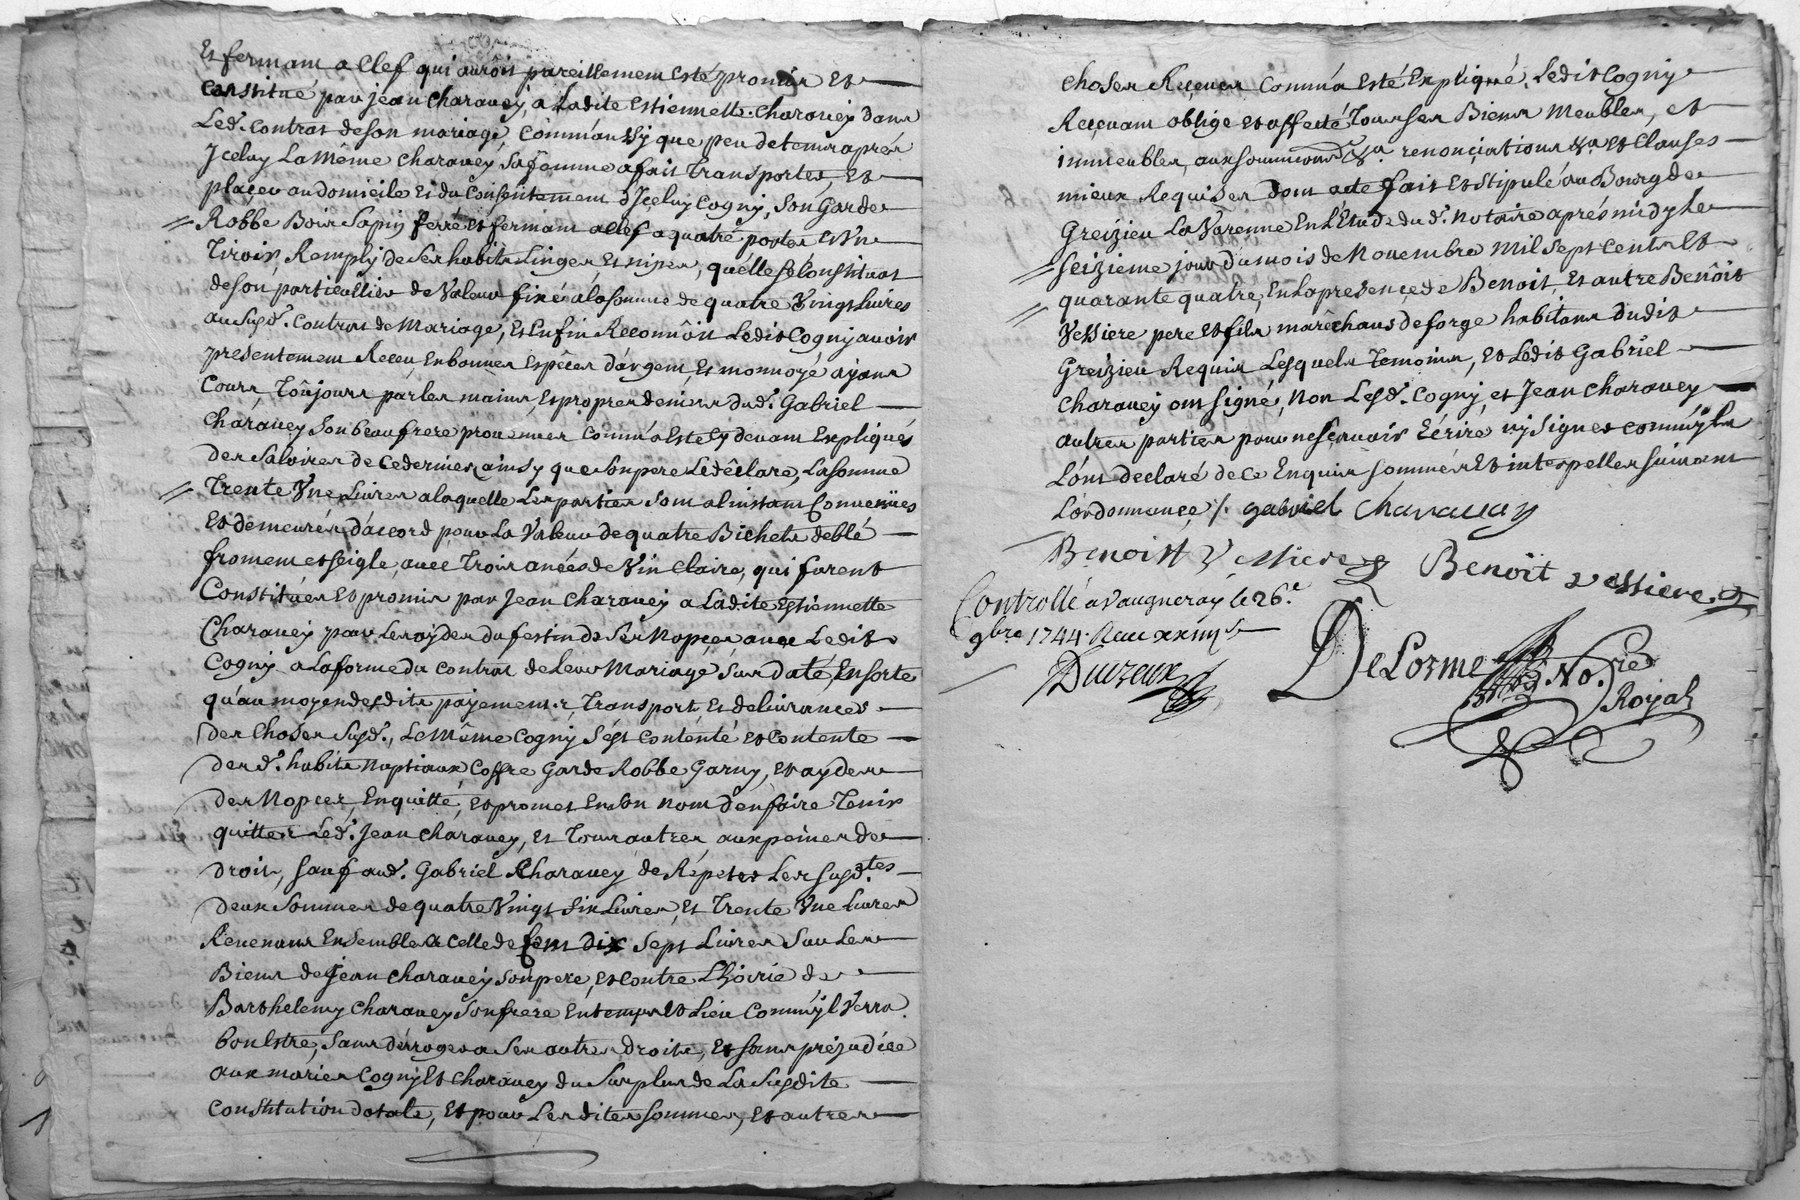 Et fermant a Clef qui auroit pareillement Esté promis Et
Constitué par Jean Charavey, a Ladite Estiennette Charavey dans
Led. Contrat de son mariage, Comm'aussy que peu de tems après
Jceluy La Même Charavey Sa femme a fait Transporter, Et
placer au domicile Et du Consentement d'Jceluy Cogny, Son Garde
Robbe Bois Sapin ferré et fermant a Clef a quatre portes Et Vn
Tiroir, Remply de Ses habits Linges, Et nipes, qu'elle Se Constituat
de son particullier de Valeur fixé a la somme de quatre Vingt Livres
au Susd. Contrat de Mariage, Et Enfin Reconnôit Ledit Cogny avoir
presentement Receu, En bonnes Espêces d'argent, Et monnoyé ayans
Cours, Toûjours par les mains, Et propres deniers dud. Gabriel
Charavey Son beaufrere provenues Comm'a Esté Cy devant Expliqués
des Salaires de Ce dernier, ainsy que Son pere Le déclare, La somme
Trente Vne Livres a laquelle Les parties Sont a l'instant Convenües
Et demeurés d'accord pour La Valeur de quatre Bichets de blé
froment et seigle, avec Trois anées de Vin Claire, qui furent
Constitués Et promis par Jean Charavey a Ladite Estiennette
Charavey pour Leroyder du festin de Ses Nopces avec Ledit
Cogny a La forme du Contrat de Leur Mariage, Sus Daté, En sorte
qu'au moyen desdits payements, Transport, Et delivrances
des Choses Susd., Le Même Cogny S'est Contenté et Contente
des d. habits Nuptiaux, Coffre Garde Robbe Garny, et ayde
des Nopces, En quitte, Et promet En son nom d'en faire Tenir
quitte Led. Jean Charavey, Et Tous autres, aux peines de
droit, Sauf aud. Gabriel Charavey de Répeter Les Susd.tes
deux Sommes de quatre Vingt Six Livres, Et Trente Vne Livres
Revenans Ensemble a Celle de Cent dix Sept Livres Sur Les
Biens de Jean Charavey Son pere, Et Contre L'hoirie de
Barthelemy Charavey Son frere En temps Et Lieu Comm'jl Verra
bon Estre, Sans déroger a Ses autres droits, Et Sans préjudice
aux mariés Cogny Et Charavey du Surplus de La Susdite
Constitution dotale, Et pour Lesdites Sommes, Et autres
Choses Reçeues Comm'a Esté Expliqué, Ledit Cogny
Reçevant oblige Et affecté Tous Ses Biens Meubles, et
immeubles, aux soumissions &a. renonciations &a. Et Clauses
mieux Requises dont acte fait Et Stipulé au Bourg de
Greizieu La Varenne En L'Etude du d. Notaire après midy Le
Seizieme jour du mois de Novembre Mil Sept Cents Et
quarante quatre, En La presençe de Benoit, Et autre Benôit
Vessiere pere Et fils maréchaus de forge habitans dudit
Greizieu Requis Lesquels Temoins, Et Ledit Gabriel
Charavey ont Signé, Non Lesd. Cogny, et Jean Charavey
autres parties pour ne Sçavoir Ecrire ny Signer Comm'jls
L'ont declaré de Ce Enquis Sommés Et interpellés Suivant
L'ordonnance /. gabriel Charavay
Benoist Vessiere Benoit Vessiere
Controllé a Vaugneray le 26.e
9bre 1744. Reçu
DeLorme No.re
Royal